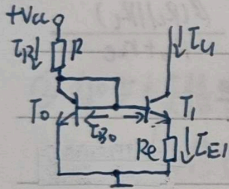 +Vcc
I_R R
I_C1
T_0 I_B0 T_1
Re I_E1